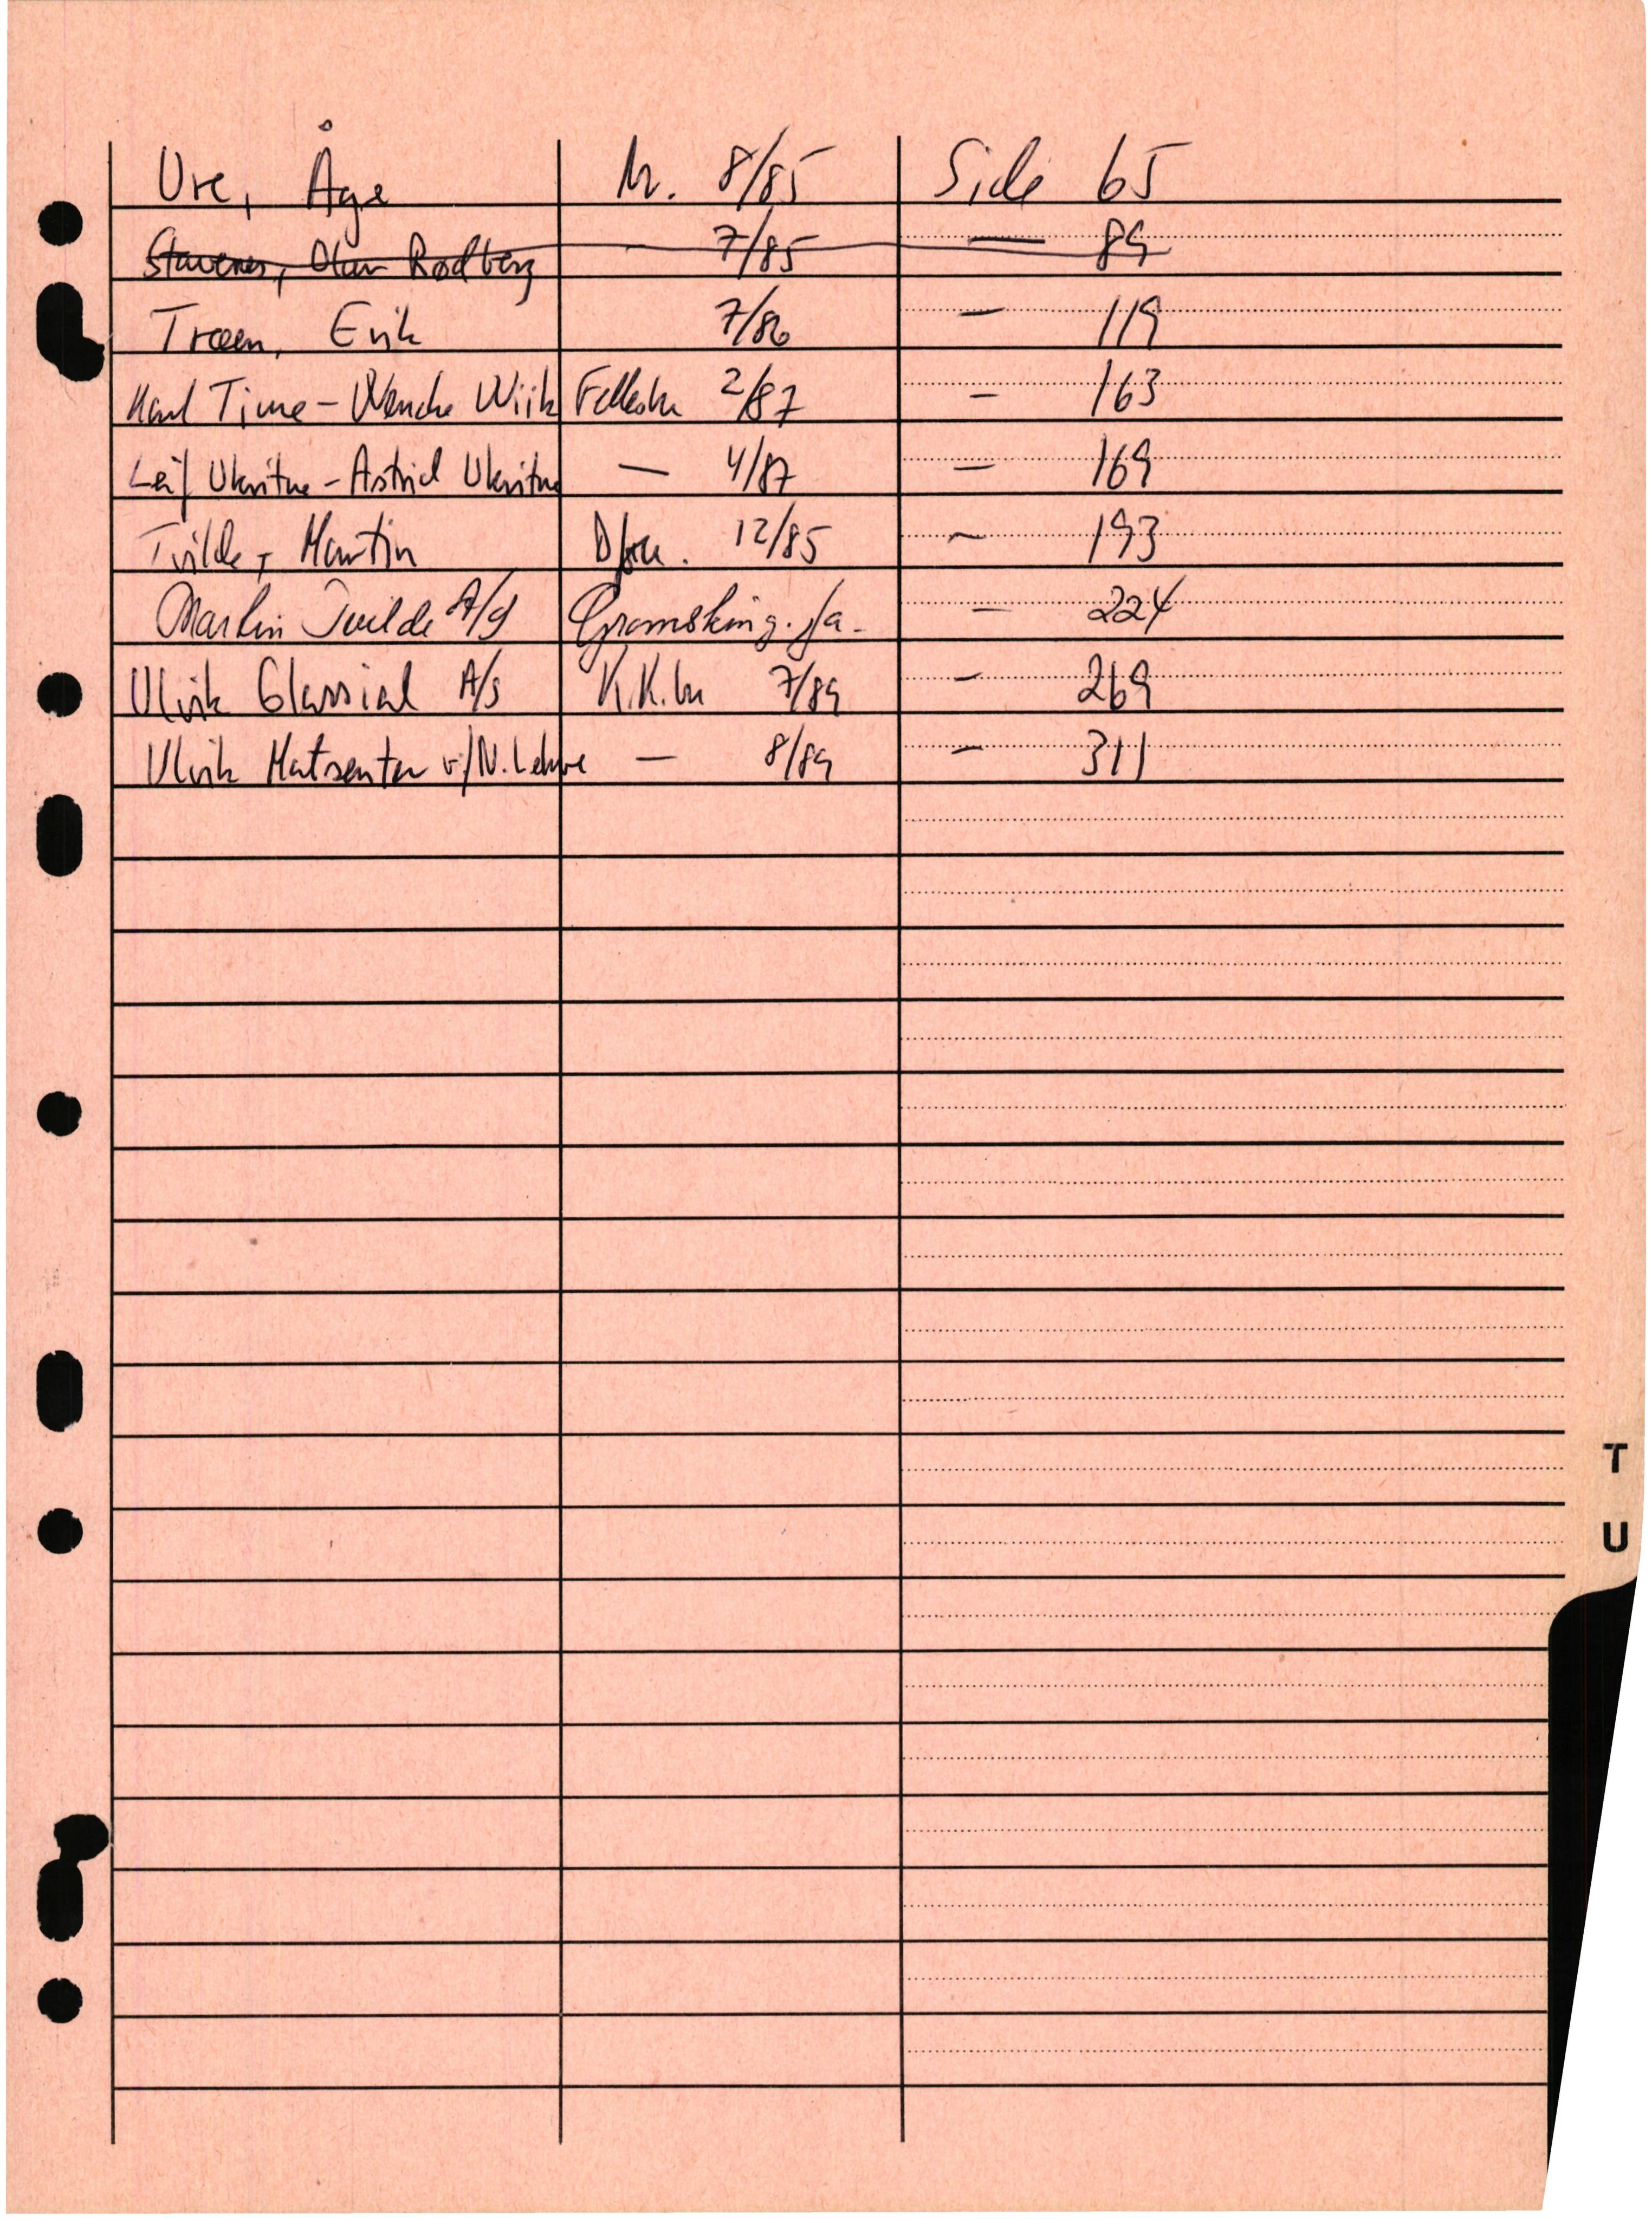 Ure, Åge Nr. 8/85 Side 65
Stavenes, Olav Rødberg - 7/85 — 89
Traen, Erik 7/86 - 119
Karl Time - Wenche Wiik Fellesbu 2/87 - 163
Leif Ukvitne - Astrid Ukvitne — 4/87 - 169
Tvilde, Martin D/bu. 12/85 - 193
Martin Tvilde A/S - 224
Ulvik Glassial A/S K.K.bu 7/89 - 269
Ulvik Matsenter v/N. Lekve — 8/89 - 311
T
U